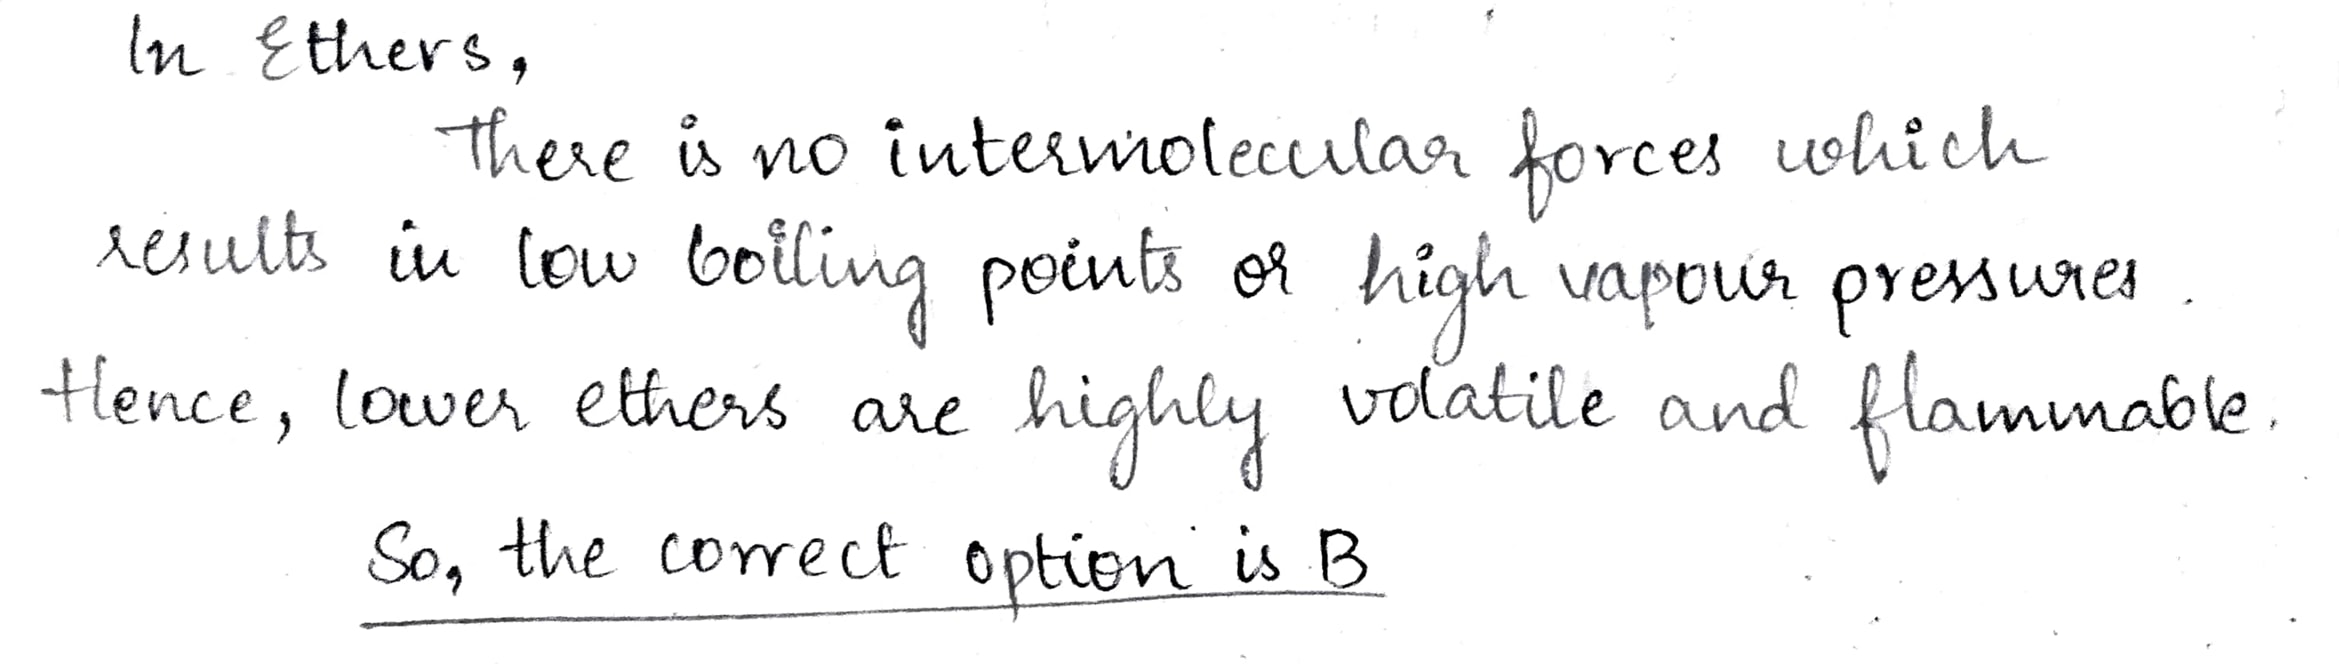 In Ethers,
There is no intermolecular forces which
results in low boiling points or high vapour pressures.
Hence, lower ethers are highly volatile and flammable.
So, the correct option is B